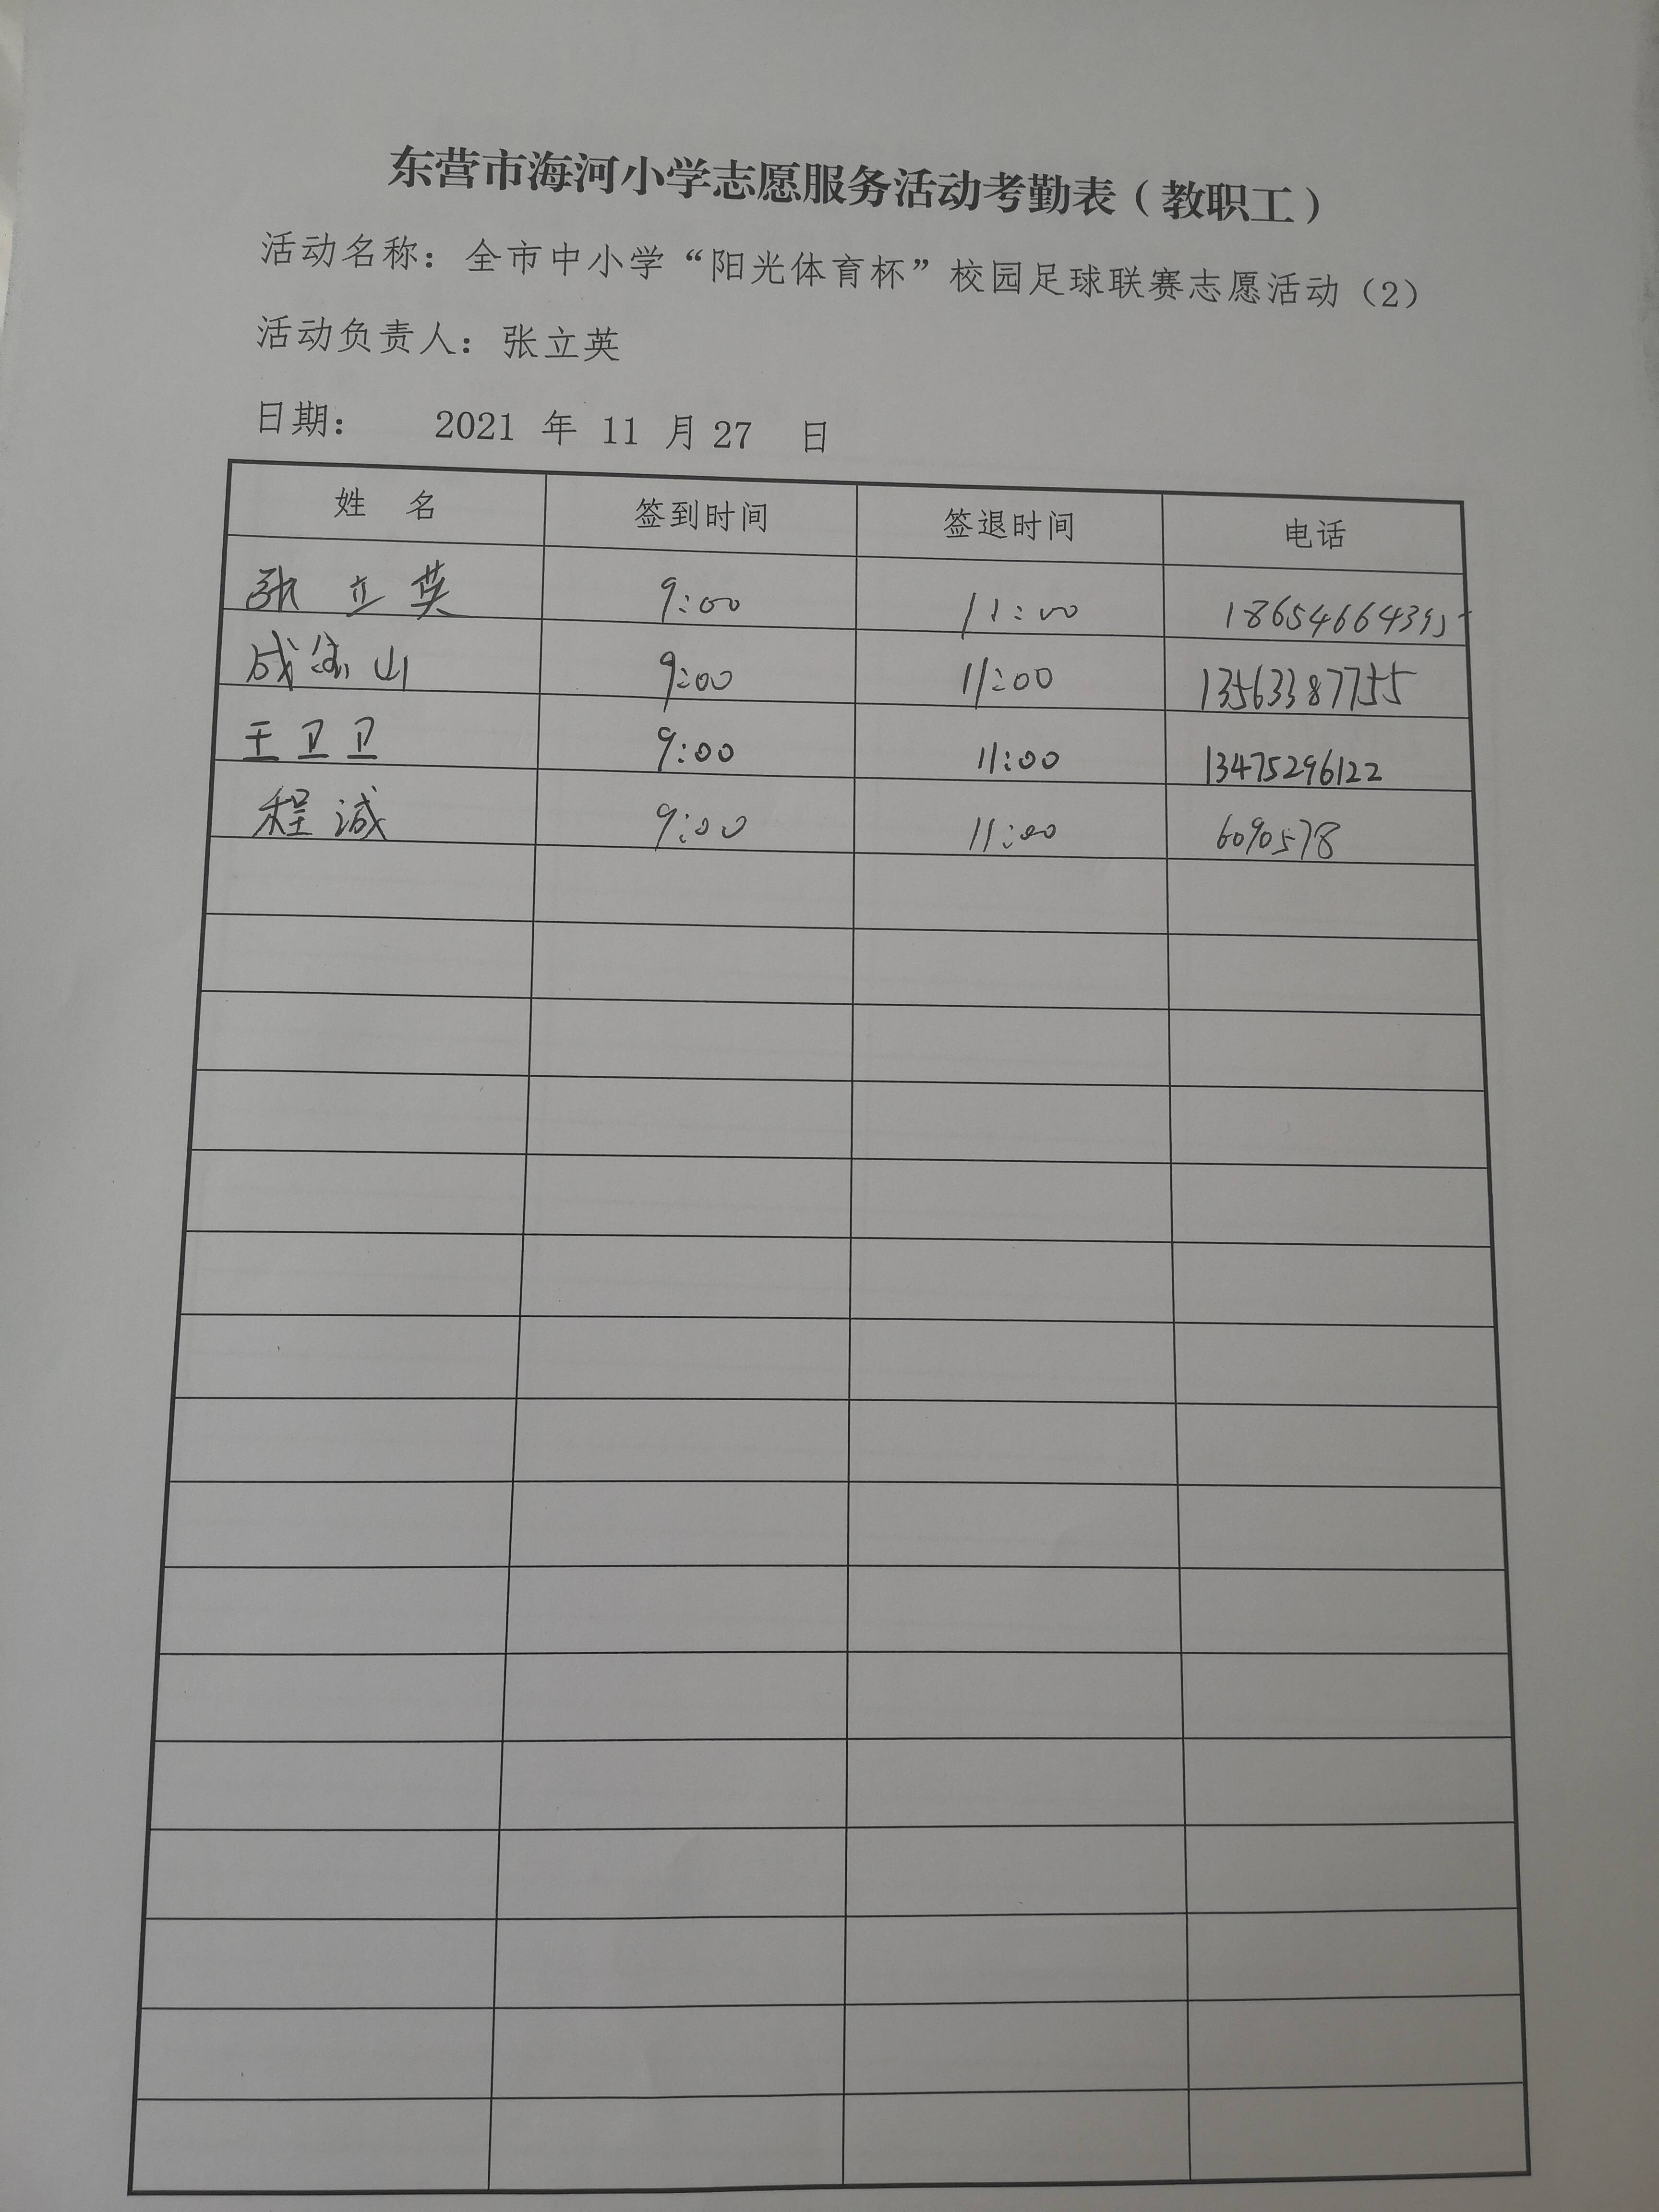 东营市海河小学志愿服务活动考勤表（教职工）
活动名称：全市中小学“阳光体育杯”校园足球联赛志愿活动（2）
活动负责人：张立英
日期： 2021 年 11 月 27 日
姓 名 签到时间 签退时间 电话
张立英 9:00 11:00 18654664395
成宝山 9:00 11:00 13563387755
王卫卫 9:00 11:00 13475296122
程诚 9:00 11:00 6090578